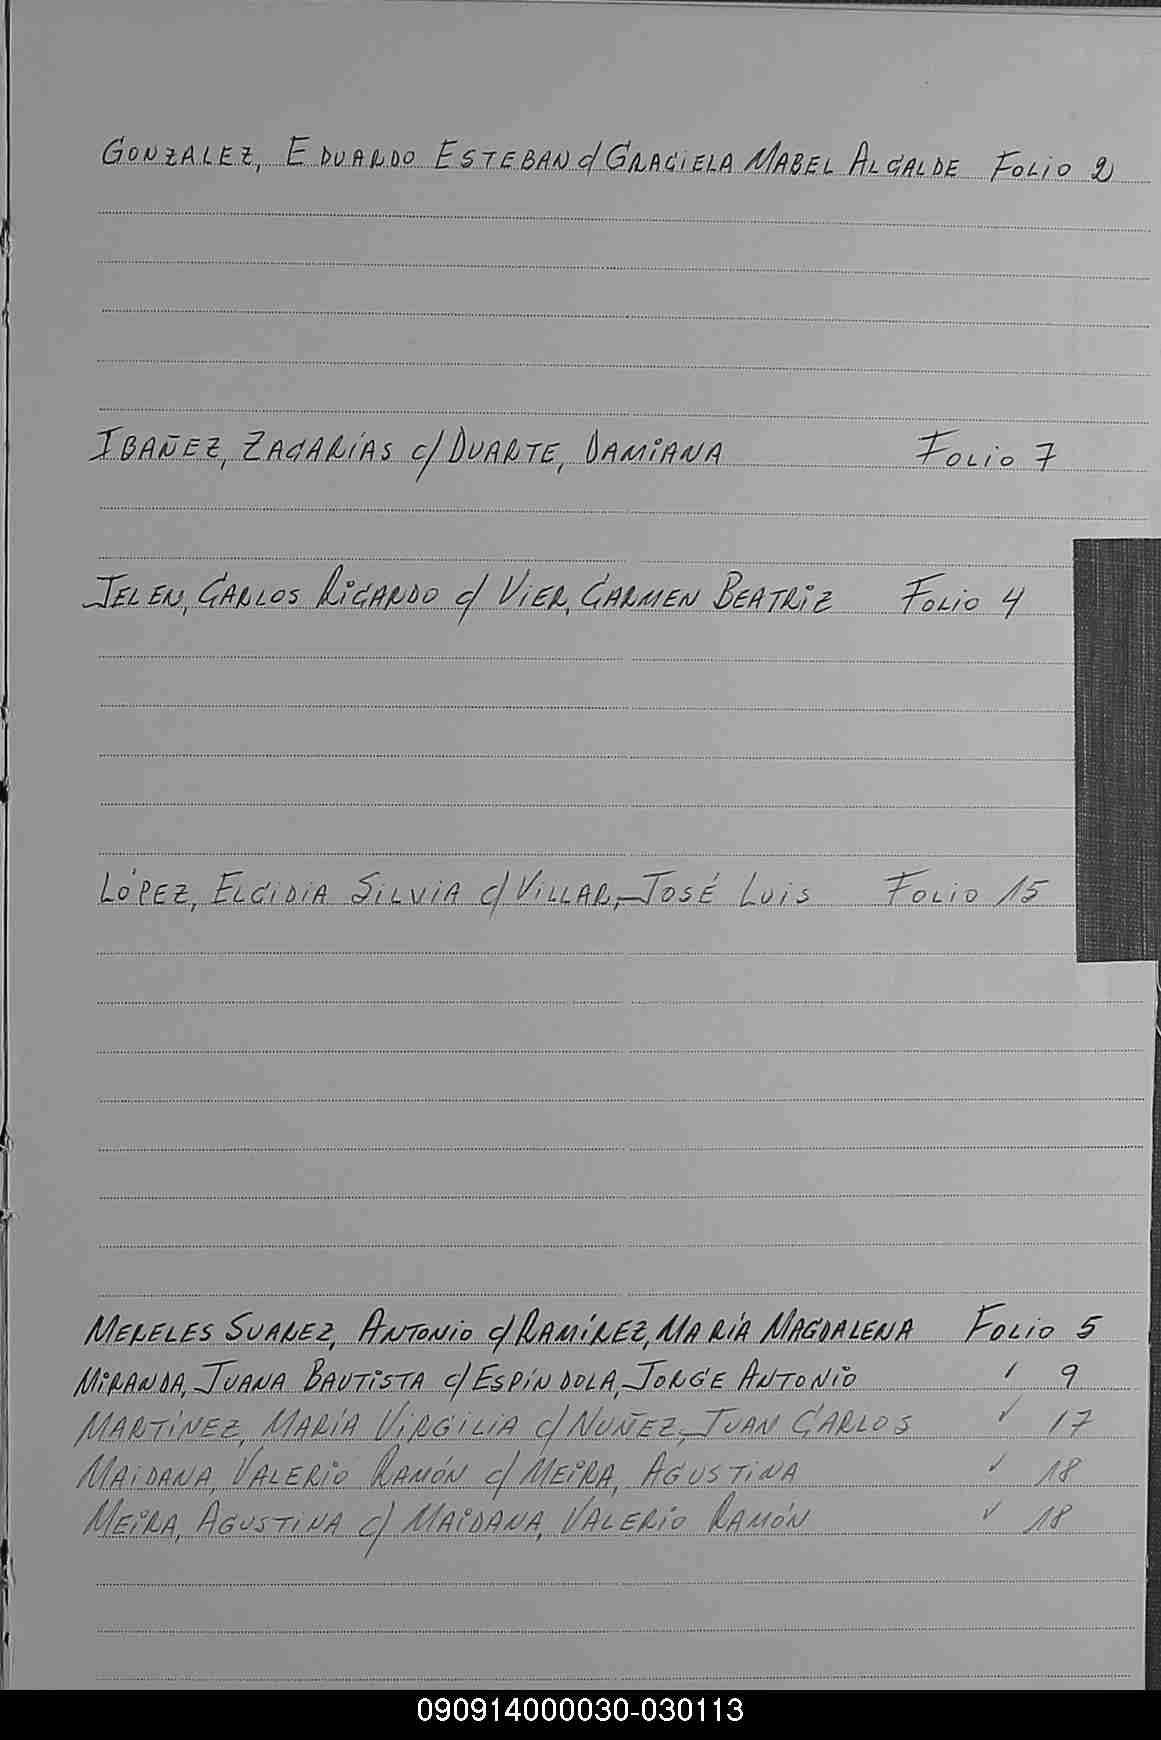 GONZALEZ, EDUARDO ESTEBAN c/ GRACIELA MABEL ALCALDE FOLIO 2
IBAÑEZ, ZACARÍAS c/ DUARTE, DAMIANA FOLIO 7
JELEN, CARLOS RICARDO c/ VIER, CARMEN BEATRIZ FOLIO 4
LÓPEZ, ELCIDIA SILVIA c/ VILLAR, JOSÉ LUIS FOLIO 15
MERELES SUAREZ, ANTONIO c/ RAMÍREZ, MARÍA MAGDALENA FOLIO 5
MIRANDA, JUANA BAUTISTA c/ ESPÍNDOLA, JORGE ANTONIO ' 9
MARTÍNEZ, MARÍA VIRGILIA c/ NUÑEZ, JUAN CARLOS ✓ 17
MAIDANA, VALERIO RAMÓN c/ MEIRA, AGUSTINA ✓ 18
MEIRA, AGUSTINA c/ MAIDANA, VALERIO RAMÓN ✓ 18
090914000030-030113